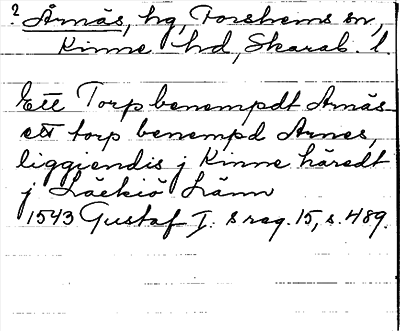 ? Årnäs, hg, Forshems sn,
Kinne hd, Skarab. l.
Ett Torp benempdt Arnäs
ett torp benempd Arnes,
liggiendis j Kinne häredt
j Läckiö Länn
1543 Gustaf I. s reg. 15, s. 489.